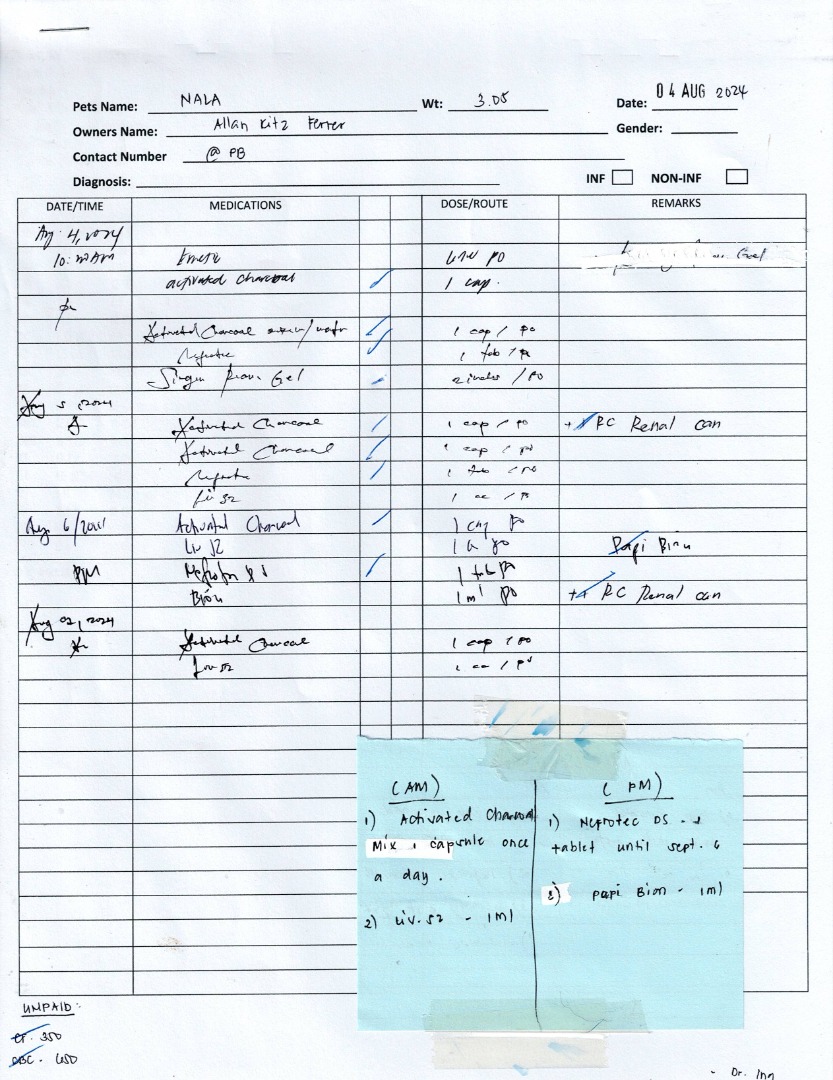 Pets Name: NALA Wt: 3.05 Date: 04 AUG 2024
Owners Name: Allan Kitz Ferrer Gender:
Contact Number @ PB
Diagnosis: INF NON-INF
DATE/TIME MEDICATIONS DOSE/ROUTE REMARKS
Aug. 4, 2024
10: AM po Gel
activated charcoal 1 cap.
Activated Charcoal 1 cap / po
1 tab / po
Gel / po
Aug 5, 2024
Activated Charcoal 1 cap / po + RC Renal can
Activated Charcoal 1 cap / po
1 tab / po
Liv 52 1 cc / po
Aug 6/2024 Activated Charcoal 1 cap po
Liv 52 po Papi Bion
PM 1 tab po
Bion 1 ml po ++ RC Renal can
Aug 02, 2024
Activated Charcoal 1 cap / po
Liv 52 1 cc / po
(AM)
1) Activated Charcoal
Mix 1 capsule once
a day.
2) Liv. 52 - 1ml
(PM)
1) Neprotec DS - 1
tablet until sept. 6
2) papi Bion - 1ml
UNPAID:
CF. 350
CBC - 450
- Dr. Ing